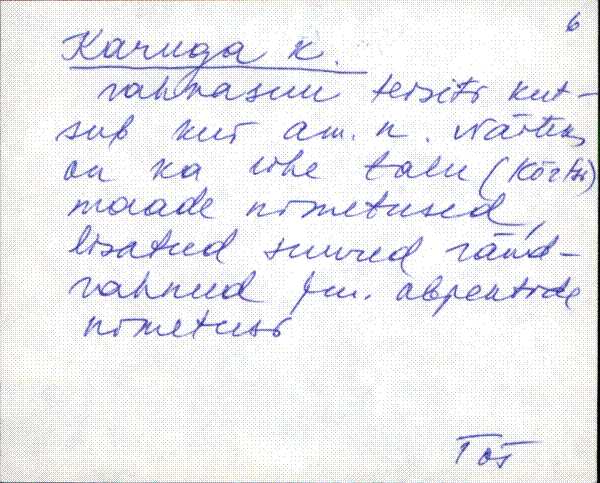 6
Karuga k.
rahvasuu teisiti kut-
sub kui am. n. Näiteks
on ka ühe talu (Kõrtsi)
maade nimetused,
lisatud suured ränd-
rahnud jm. objektide
nimetusi
Tõs